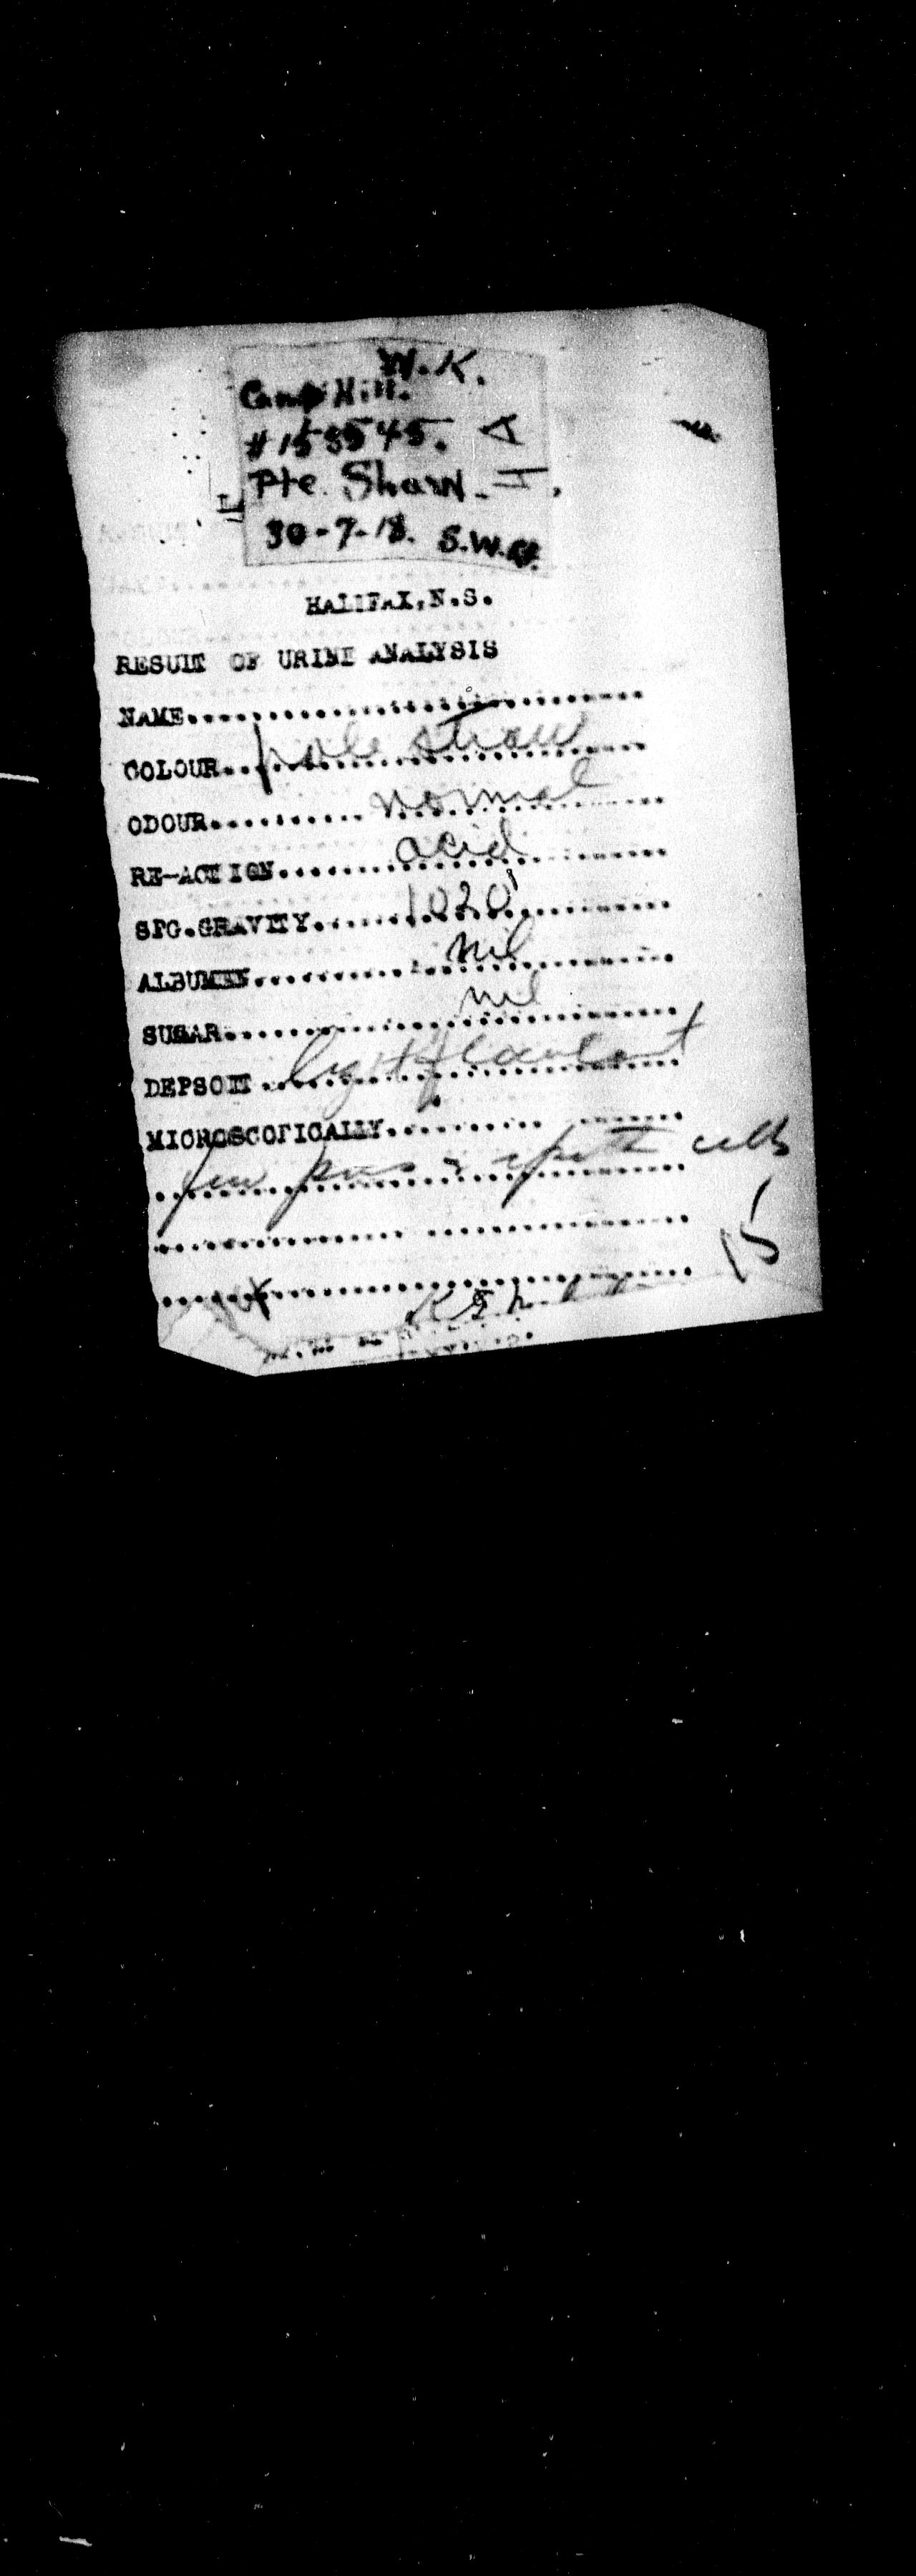 W.K.
Camp Hill.
Pte. Shaw
30-7-18. S.W.
HALIFAX, N.S.
RESULT OF URINE ANALYSIS
NAME..............................
COLOUR.. pale straw
ODOUR.......... normal
RE-ACTION....... acid
SPG.GRAVITY...... 1020
ALBUMEN.......... nil
SUGAR.......... nil
DEPSOIT.. light flocculent
MICROSCOPICALLY..........
few pus & epith cells
15